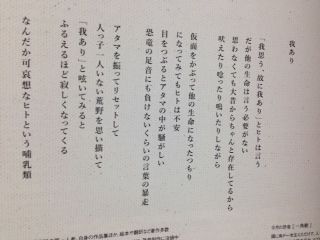 我あり
「我思う、故に我あり」とヒトは言う
だが他の生命は言う必要がない
思わなくても大昔からちゃんと存在してるから
吠えたり唸ったり鳴いたりしながら
仮面をかぶって他の生命になったつもり
になってみてもヒトは不安
目をつぶるとアタマの中の騒がしさ
恐竜の足音にも負けないくらいの言葉の暴走
アタマを振ってリセットして
人っ子一人いない荒野を思い描いて
「我あり」と呟いてみると
ふるえるほど寂しくなってくる
なんだか可哀想なヒトという哺乳類